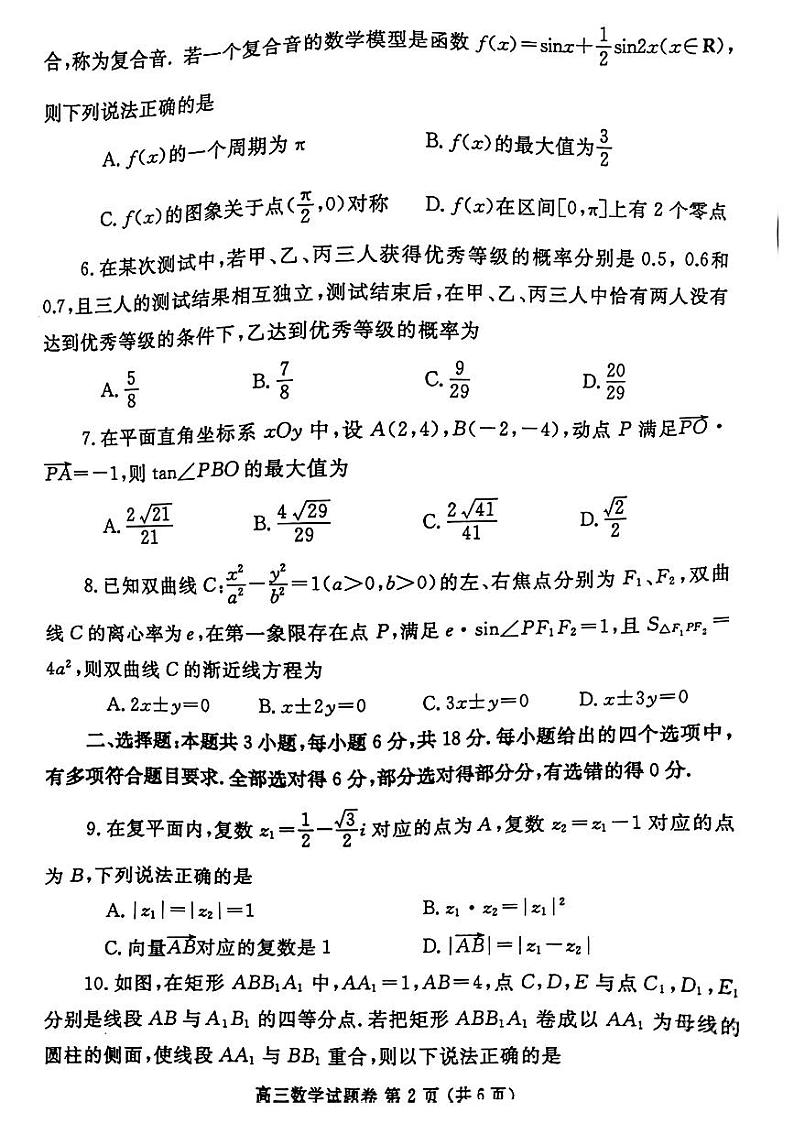 合,称为复合音. 若一个复合音的数学模型是函数 f(x)=sinx+1/2sin2x(x∈R),
则下列说法正确的是
A. f(x)的一个周期为 π B. f(x)的最大值为3/2
C. f(x)的图象关于点(π/2,0)对称 D. f(x)在区间[0,π]上有 2 个零点
6. 在某次测试中,若甲、乙、丙三人获得优秀等级的概率分别是 0.5, 0.6和
0.7,且三人的测试结果相互独立,测试结束后,在甲、乙、丙三人中恰有两人没有
达到优秀等级的条件下,乙达到优秀等级的概率为
A. 5/8 B. 7/8 C. 9/29 D. 20/29
7. 在平面直角坐标系 xOy 中,设 A(2,4),B(-2,-4),动点 P 满足PO→·
PA→=-1,则 tan∠PBO 的最大值为
A. 2√21/21 B. 4√29/29 C. 2√41/41 D. √2/2
8. 已知双曲线 C:x²/a²-y²/b²=1(a>0,b>0)的左、右焦点分别为 F₁、F₂,双曲
线 C 的离心率为 e,在第一象限存在点 P,满足 e·sin∠PF₁F₂=1,且 S△F₁PF₂=
4a²,则双曲线 C 的渐近线方程为
A. 2x±y=0 B. x±2y=0 C. 3x±y=0 D. x±3y=0
二、选择题:本题共 3 小题,每小题 6 分,共 18 分. 每小题给出的四个选项中,
有多项符合题目要求. 全部选对得 6 分,部分选对得部分分,有选错的得 0 分.
9. 在复平面内,复数 z₁=1/2-√3/2i 对应的点为 A,复数 z₂=z₁-1 对应的点
为 B,下列说法正确的是
A. |z₁|=|z₂|=1 B. z₁·z₂=|z₁|²
C. 向量AB→对应的复数是 1 D. |AB→|=|z₁-z₂|
10. 如图,在矩形 ABB₁A₁ 中,AA₁=1,AB=4,点 C,D,E 与点 C₁,D₁,E₁
分别是线段 AB 与 A₁B₁ 的四等分点. 若把矩形 ABB₁A₁ 卷成以 AA₁ 为母线的
圆柱的侧面,使线段 AA₁ 与 BB₁ 重合,则以下说法正确的是
高三数学试题卷 第 2 页 (共 6 页)